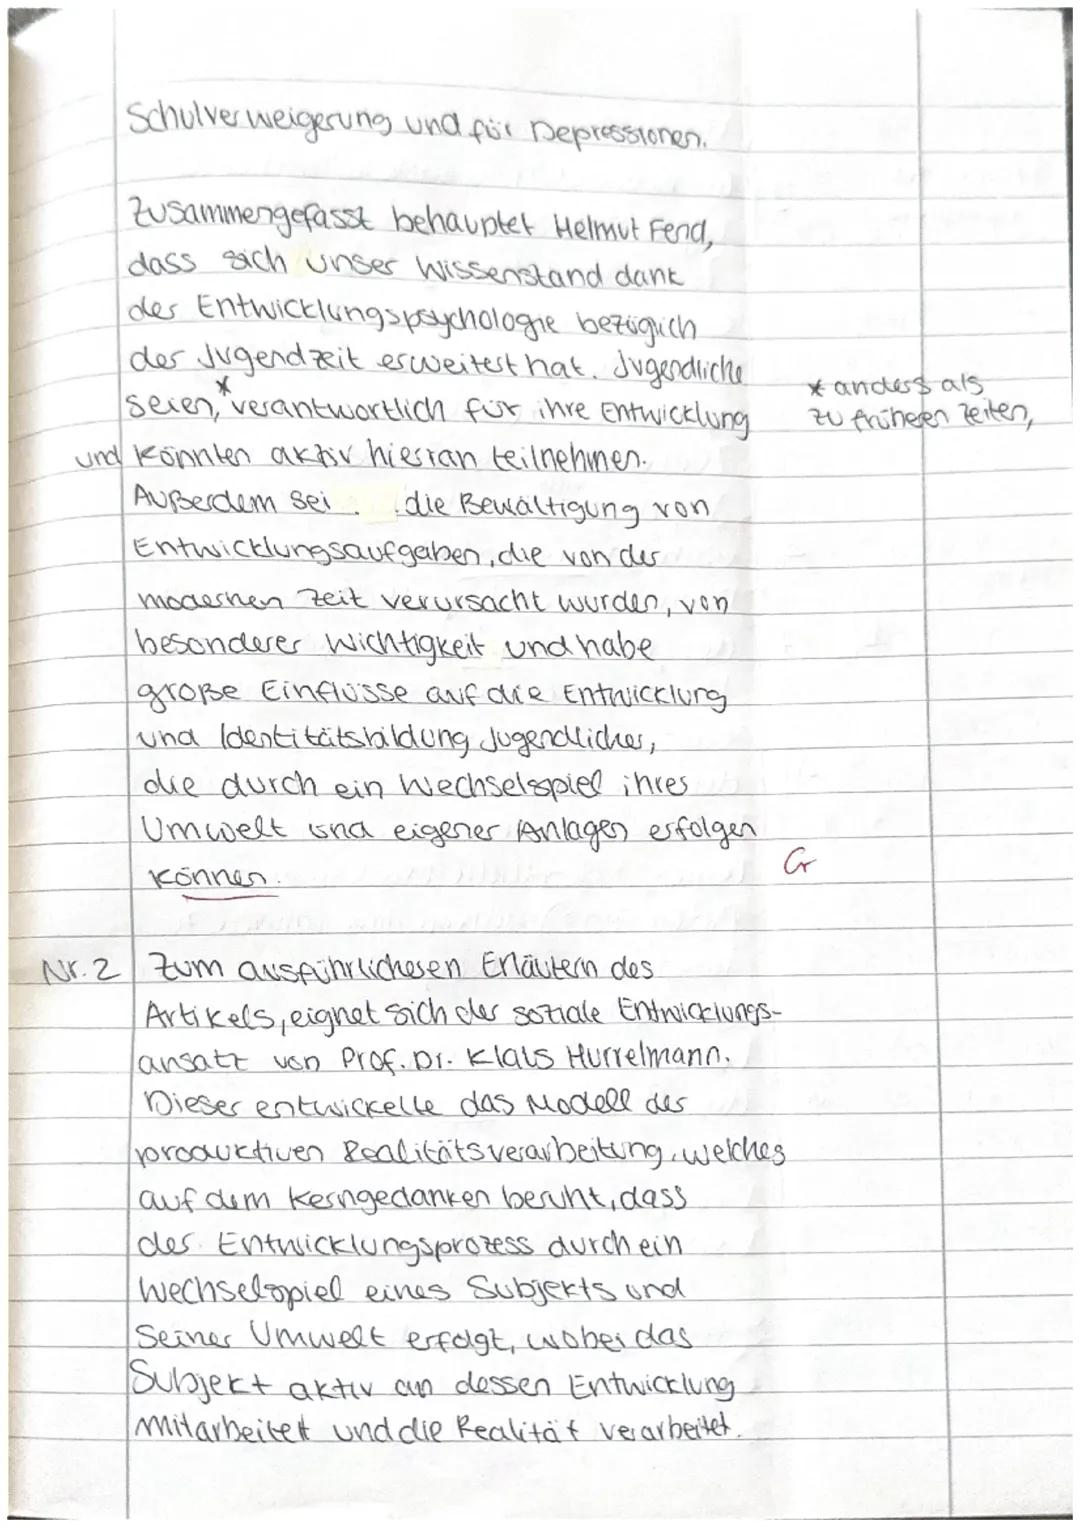 Schulverweigerung und für Depressionen.
Zusammengefasst behauptet Helmut Fend,
dass sich unser Wissenstand dank
der Entwicklungspsychologie bezüglich
der Jugendzeit erweitert hat. Jugendliche
seien,* verantwortlich für ihre Entwicklung
* anders als
zu früheren Zeiten,
und könnten aktiv hieran teilnehmen.
Außerdem sei die Bewältigung von
Entwicklungsaufgaben, die von der
modernen Zeit verursacht wurden, von
besonderer Wichtigkeit und habe
große Einflüsse auf die Entwicklung
und Identitätsbildung Jugendlicher,
die durch ein Wechselspiel ihrer
Umwelt und eigener Anlagen erfolgen
können.
Gr
Nr. 2 Zum ausführlicheren Erläutern des
Artikels, eignet sich der soziale Entwicklungs-
ansatz von Prof. Dr. Klaus Hurrelmann.
Dieser entwickelte das Modell der
produktiven Realitätsverarbeitung, welches
auf dem Kerngedanken beruht, dass
der Entwicklungsprozess durch ein
Wechselspiel eines Subjekts und
seiner Umwelt erfolgt, wobei das
Subjekt aktiv an dessen Entwicklung
mitarbeitet und die Realität verarbeitet.